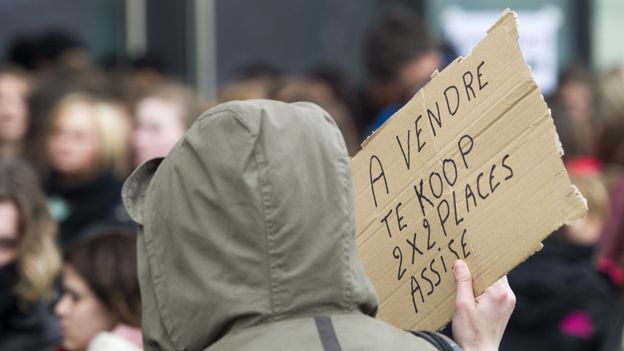 A VENDRE
TE KOOP
2x2 PLACES
ASSISE